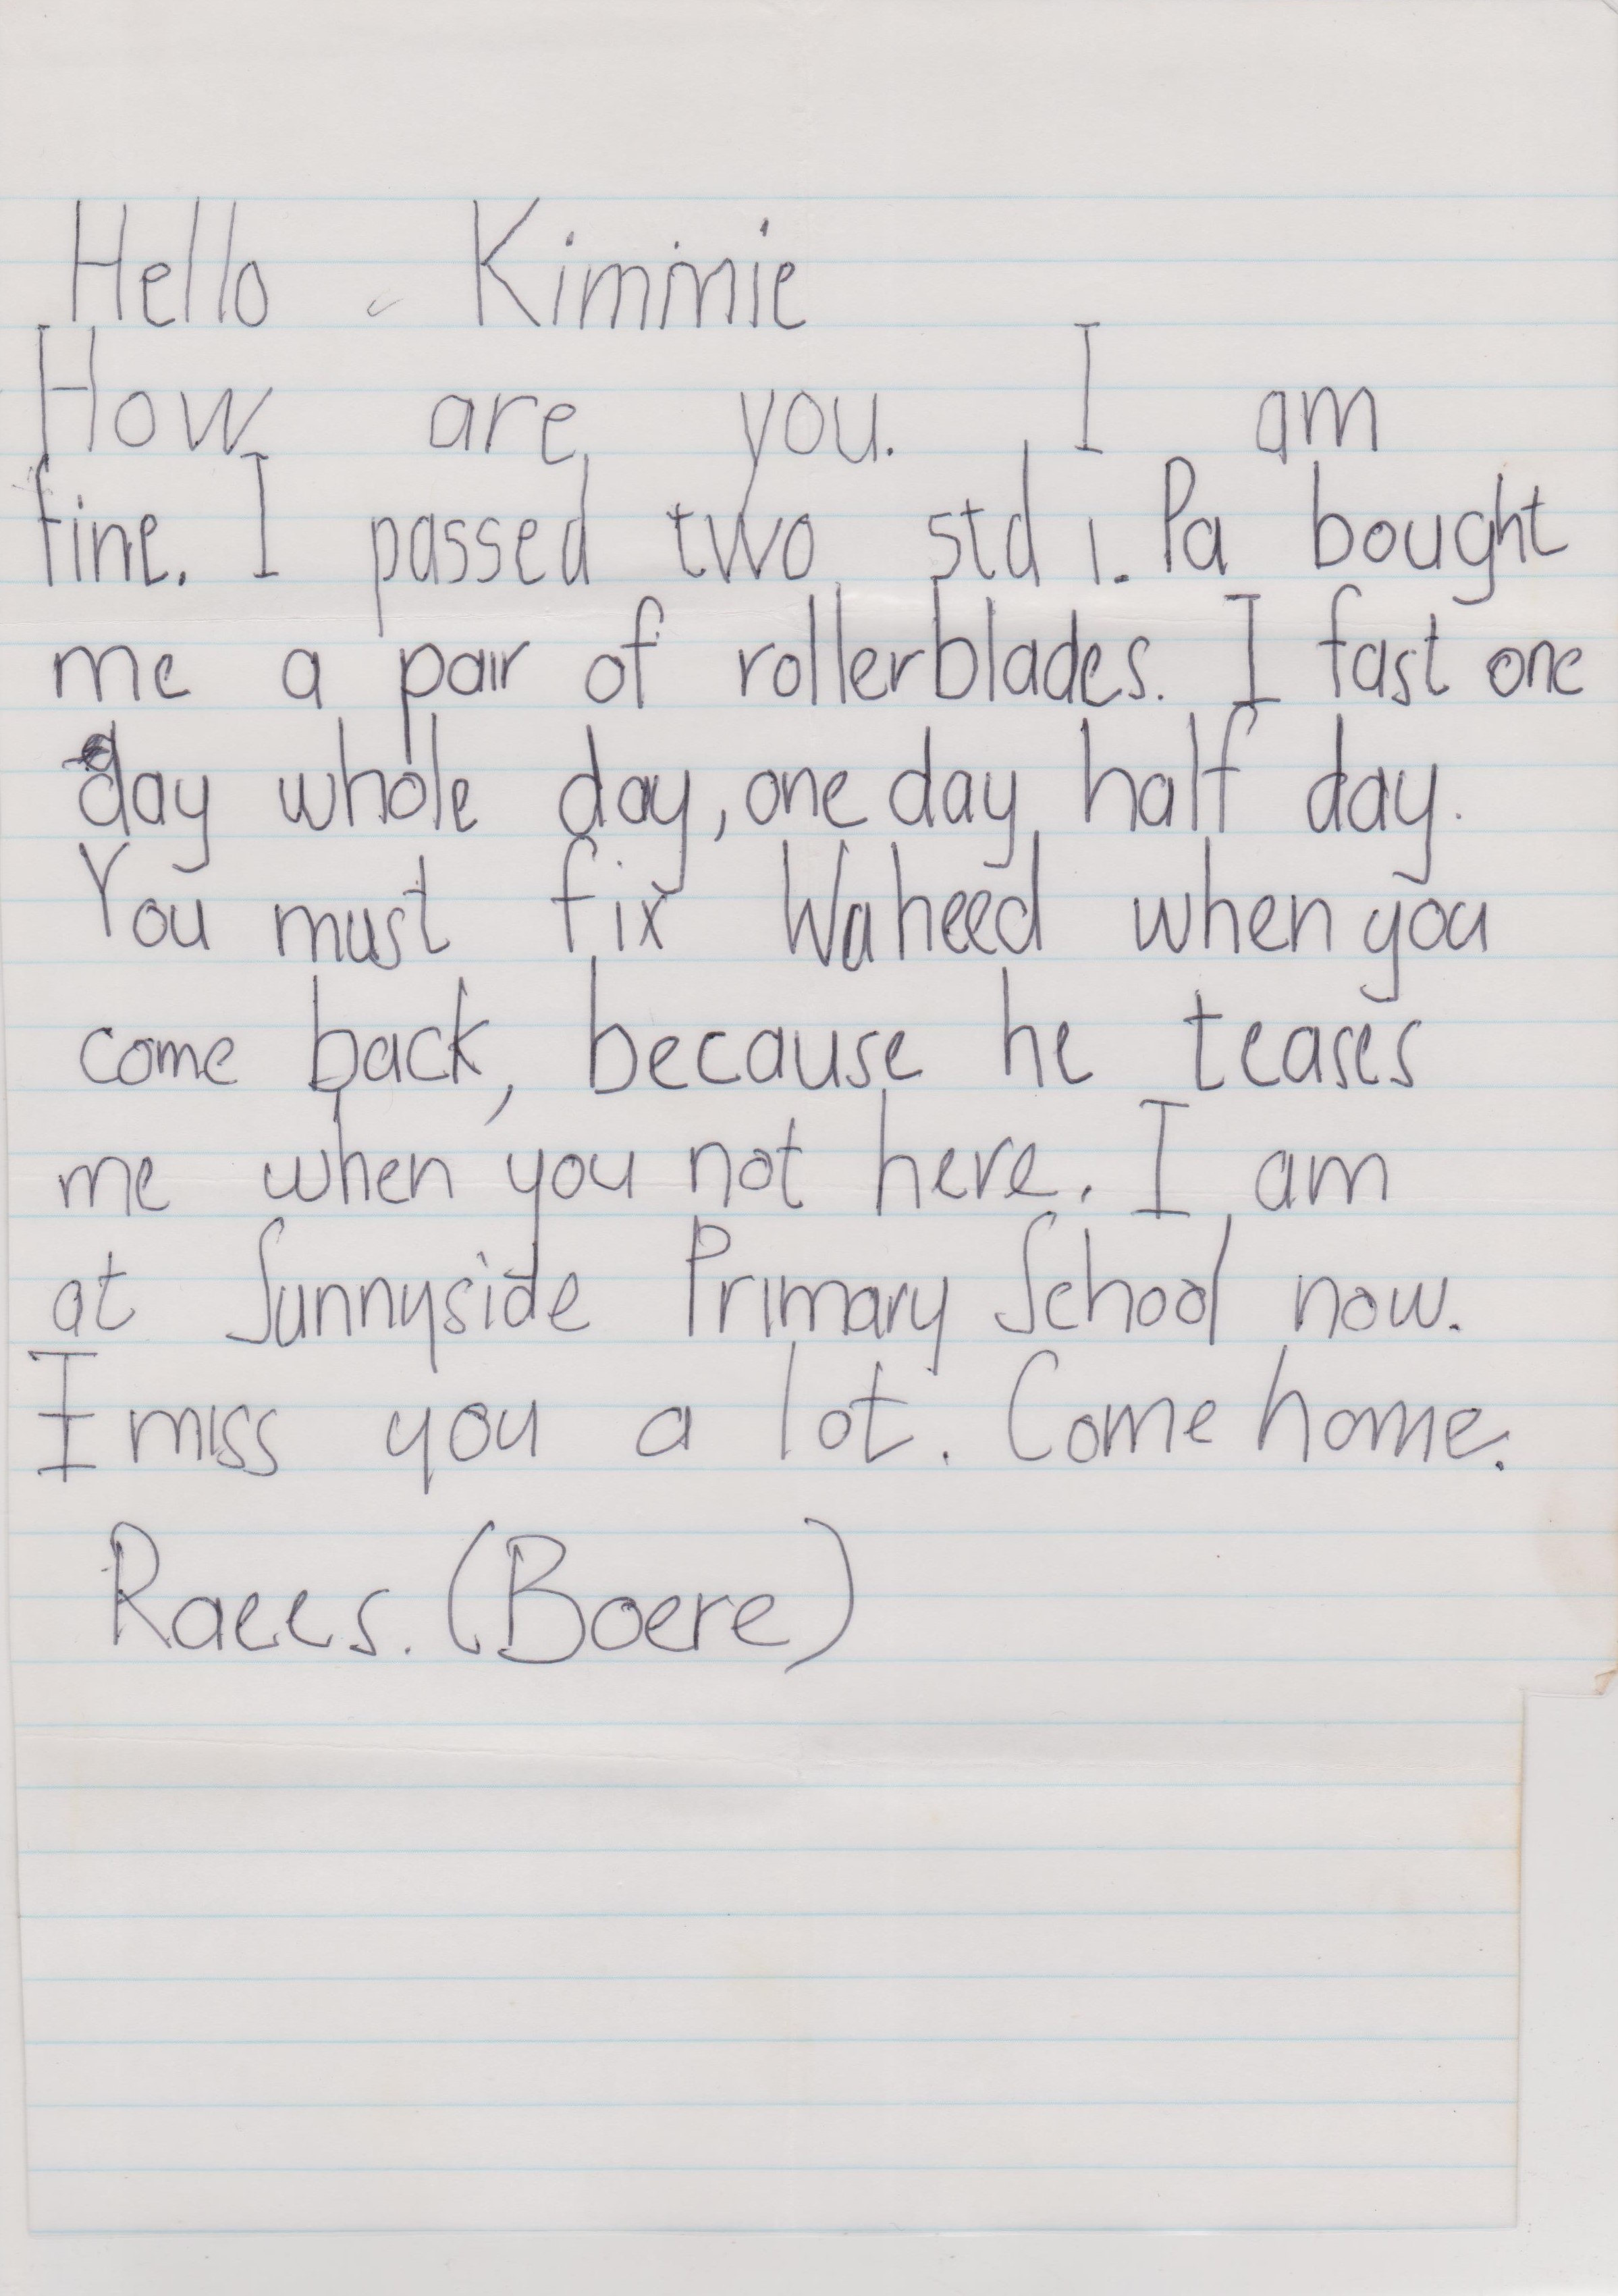 Hello Kimmie
How are you. I am
fine. I passed two std 1. Pa bought
me a pair of rollerblades. I fast one
day whole day, one day half day.
You must fix Waheed when you
come back, because he teases
me when you not here. I am
at Sunnyside Primary School now.
I miss you a lot. Come home.
Raees. (Boere)